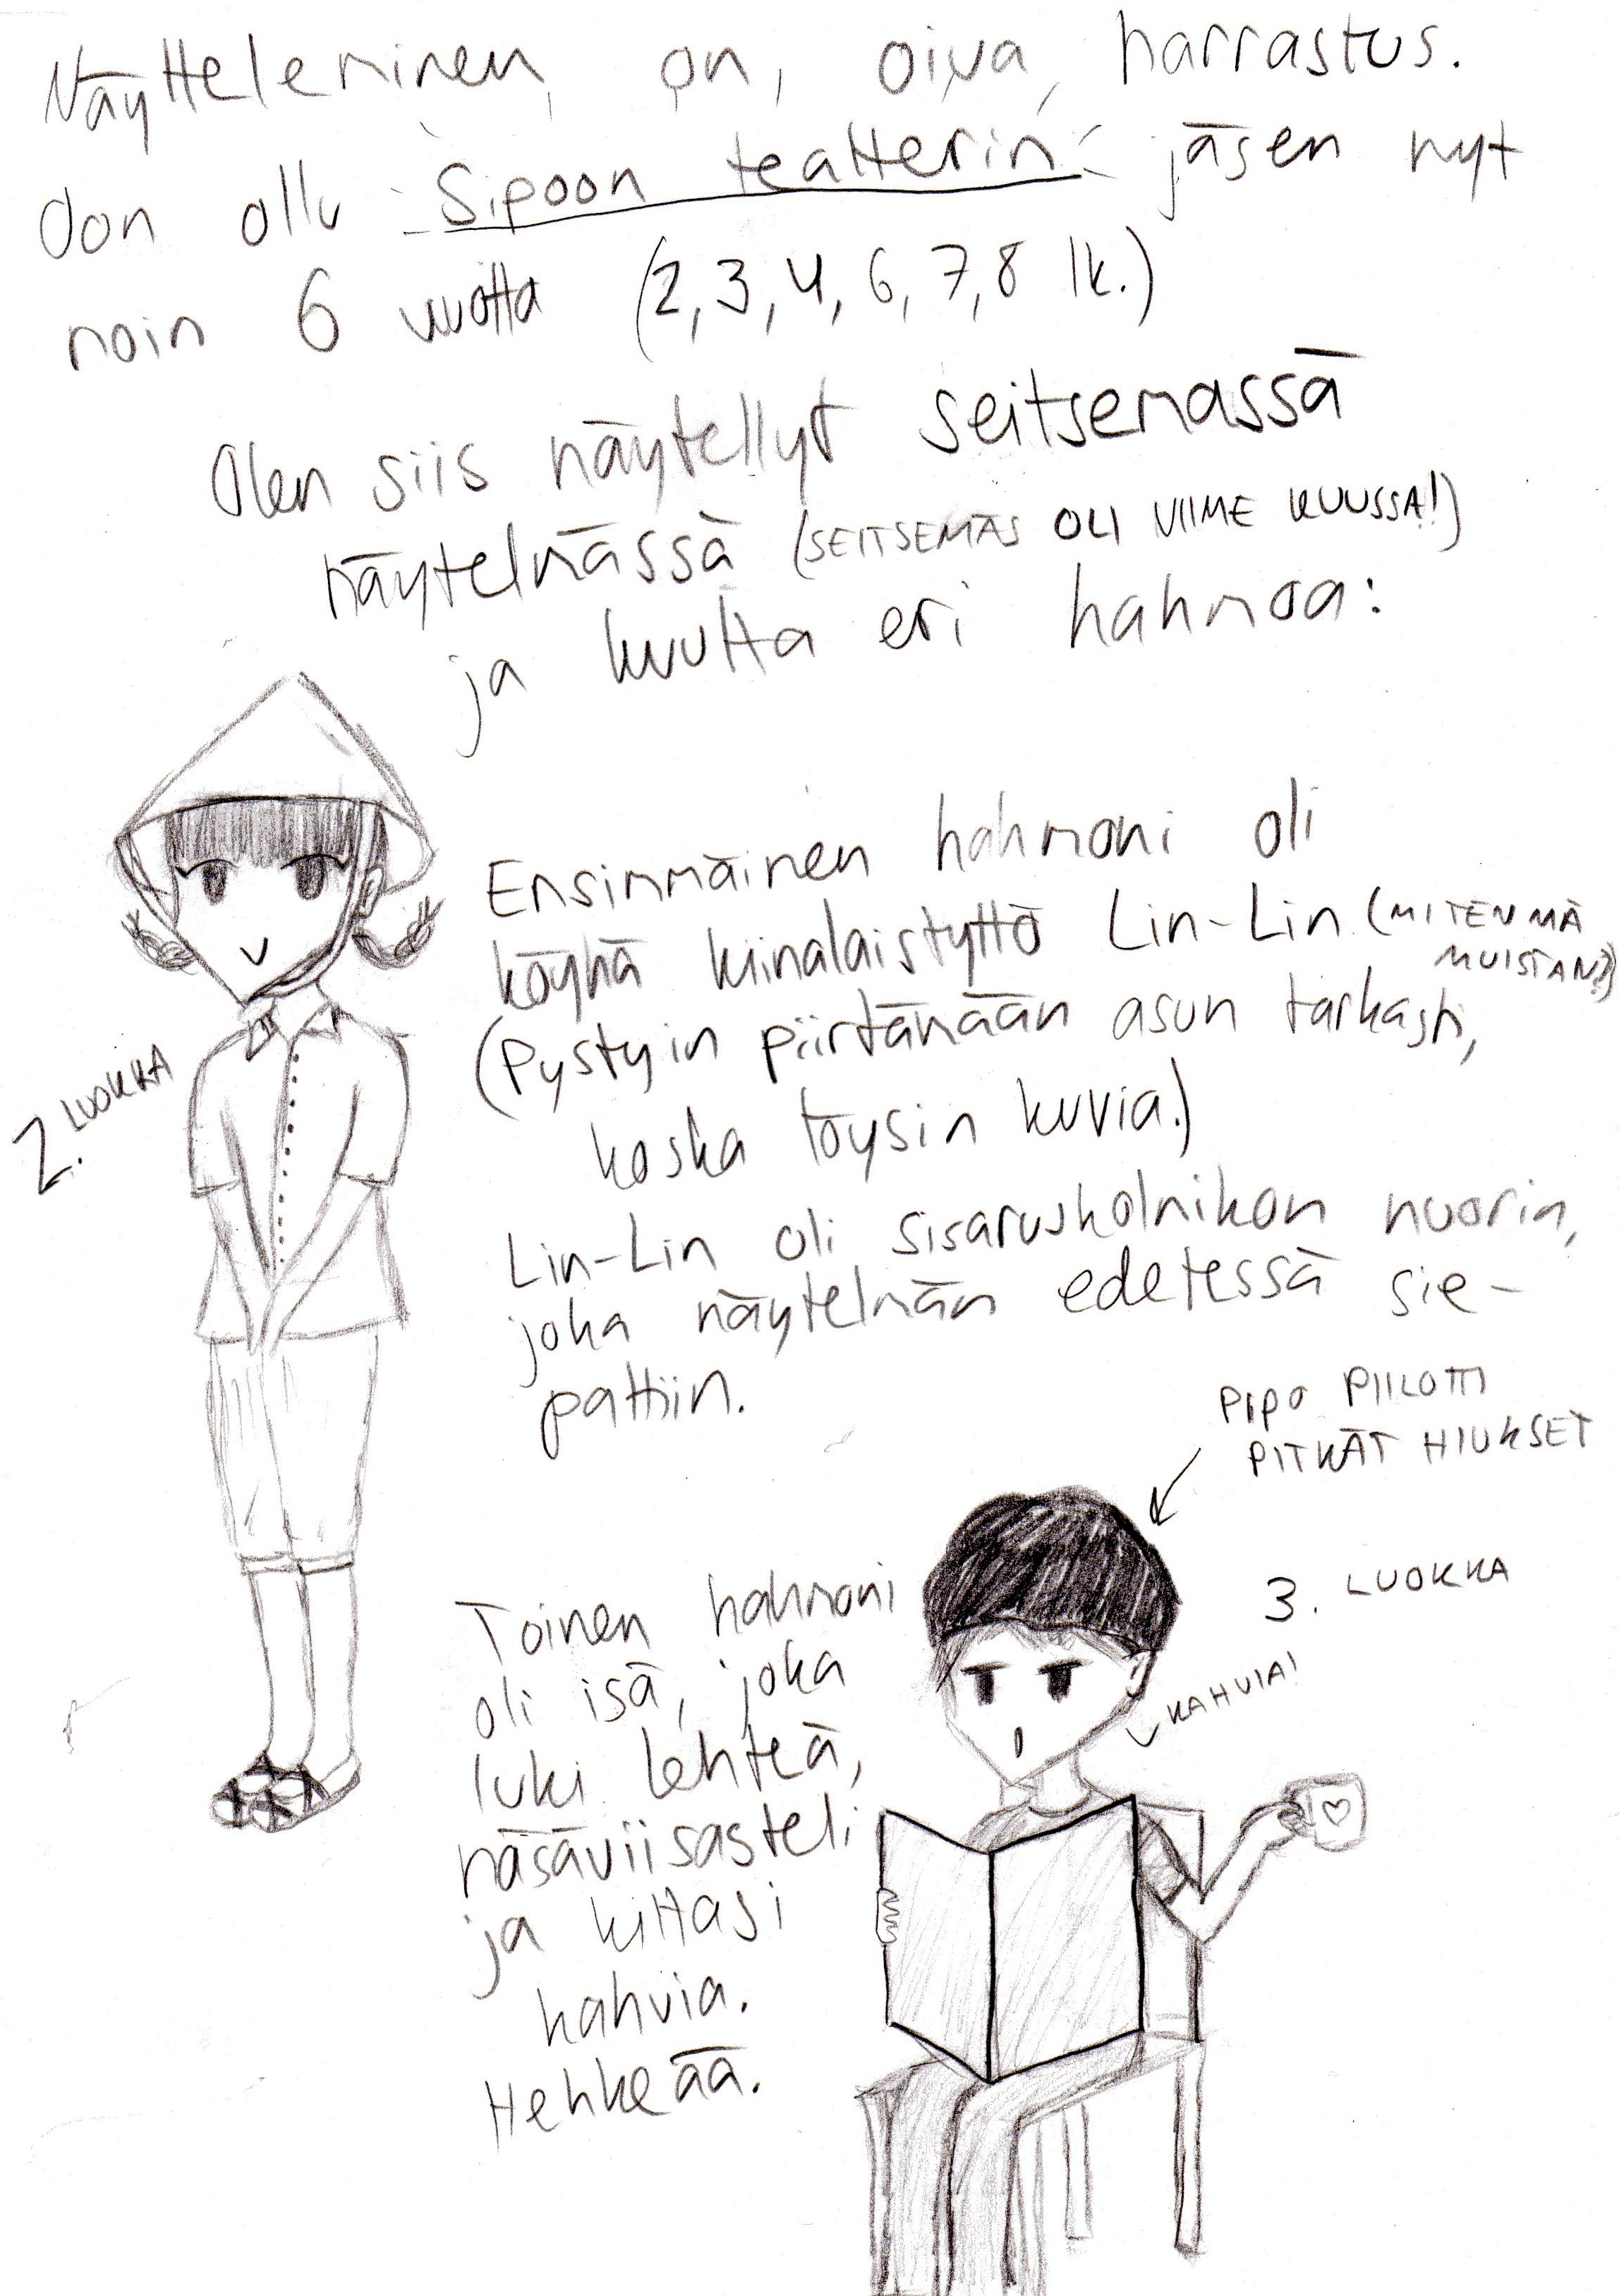 Näytteleminen on oiva harrastus.
Oon ollu Sipoon teatterin jäsen nyt
noin 6 vuotta (2, 3, 4, 6, 7, 8 lk.)
Olen siis näytellyt seitsemässä
näytelmässä (SEITSEMÄS OLI VIIME KUUSSA!)
ja kuutta eri hahmoa:
Ensimmäinen hahmoni oli
köyhä kiinalaistyttö Lin-Lin (MITEN MÄ
MUISTAN?)
(Pystyin piirtämään asun tarkasti,
koska löysin kuvia.)
2. LUOKKA
Lin-Lin oli sisaruskolmikon nuorin,
joka näytelmän edetessä sie-
pattiin.
PIPO PIILOTTI
PITKÄT HIUKSET
3. LUOKKA
KAHVIA!
Toinen hahmoni
oli isä, joka
luki lehteä,
näsäviisasteli
ja kittasi
kahvia.
Hehkeää.